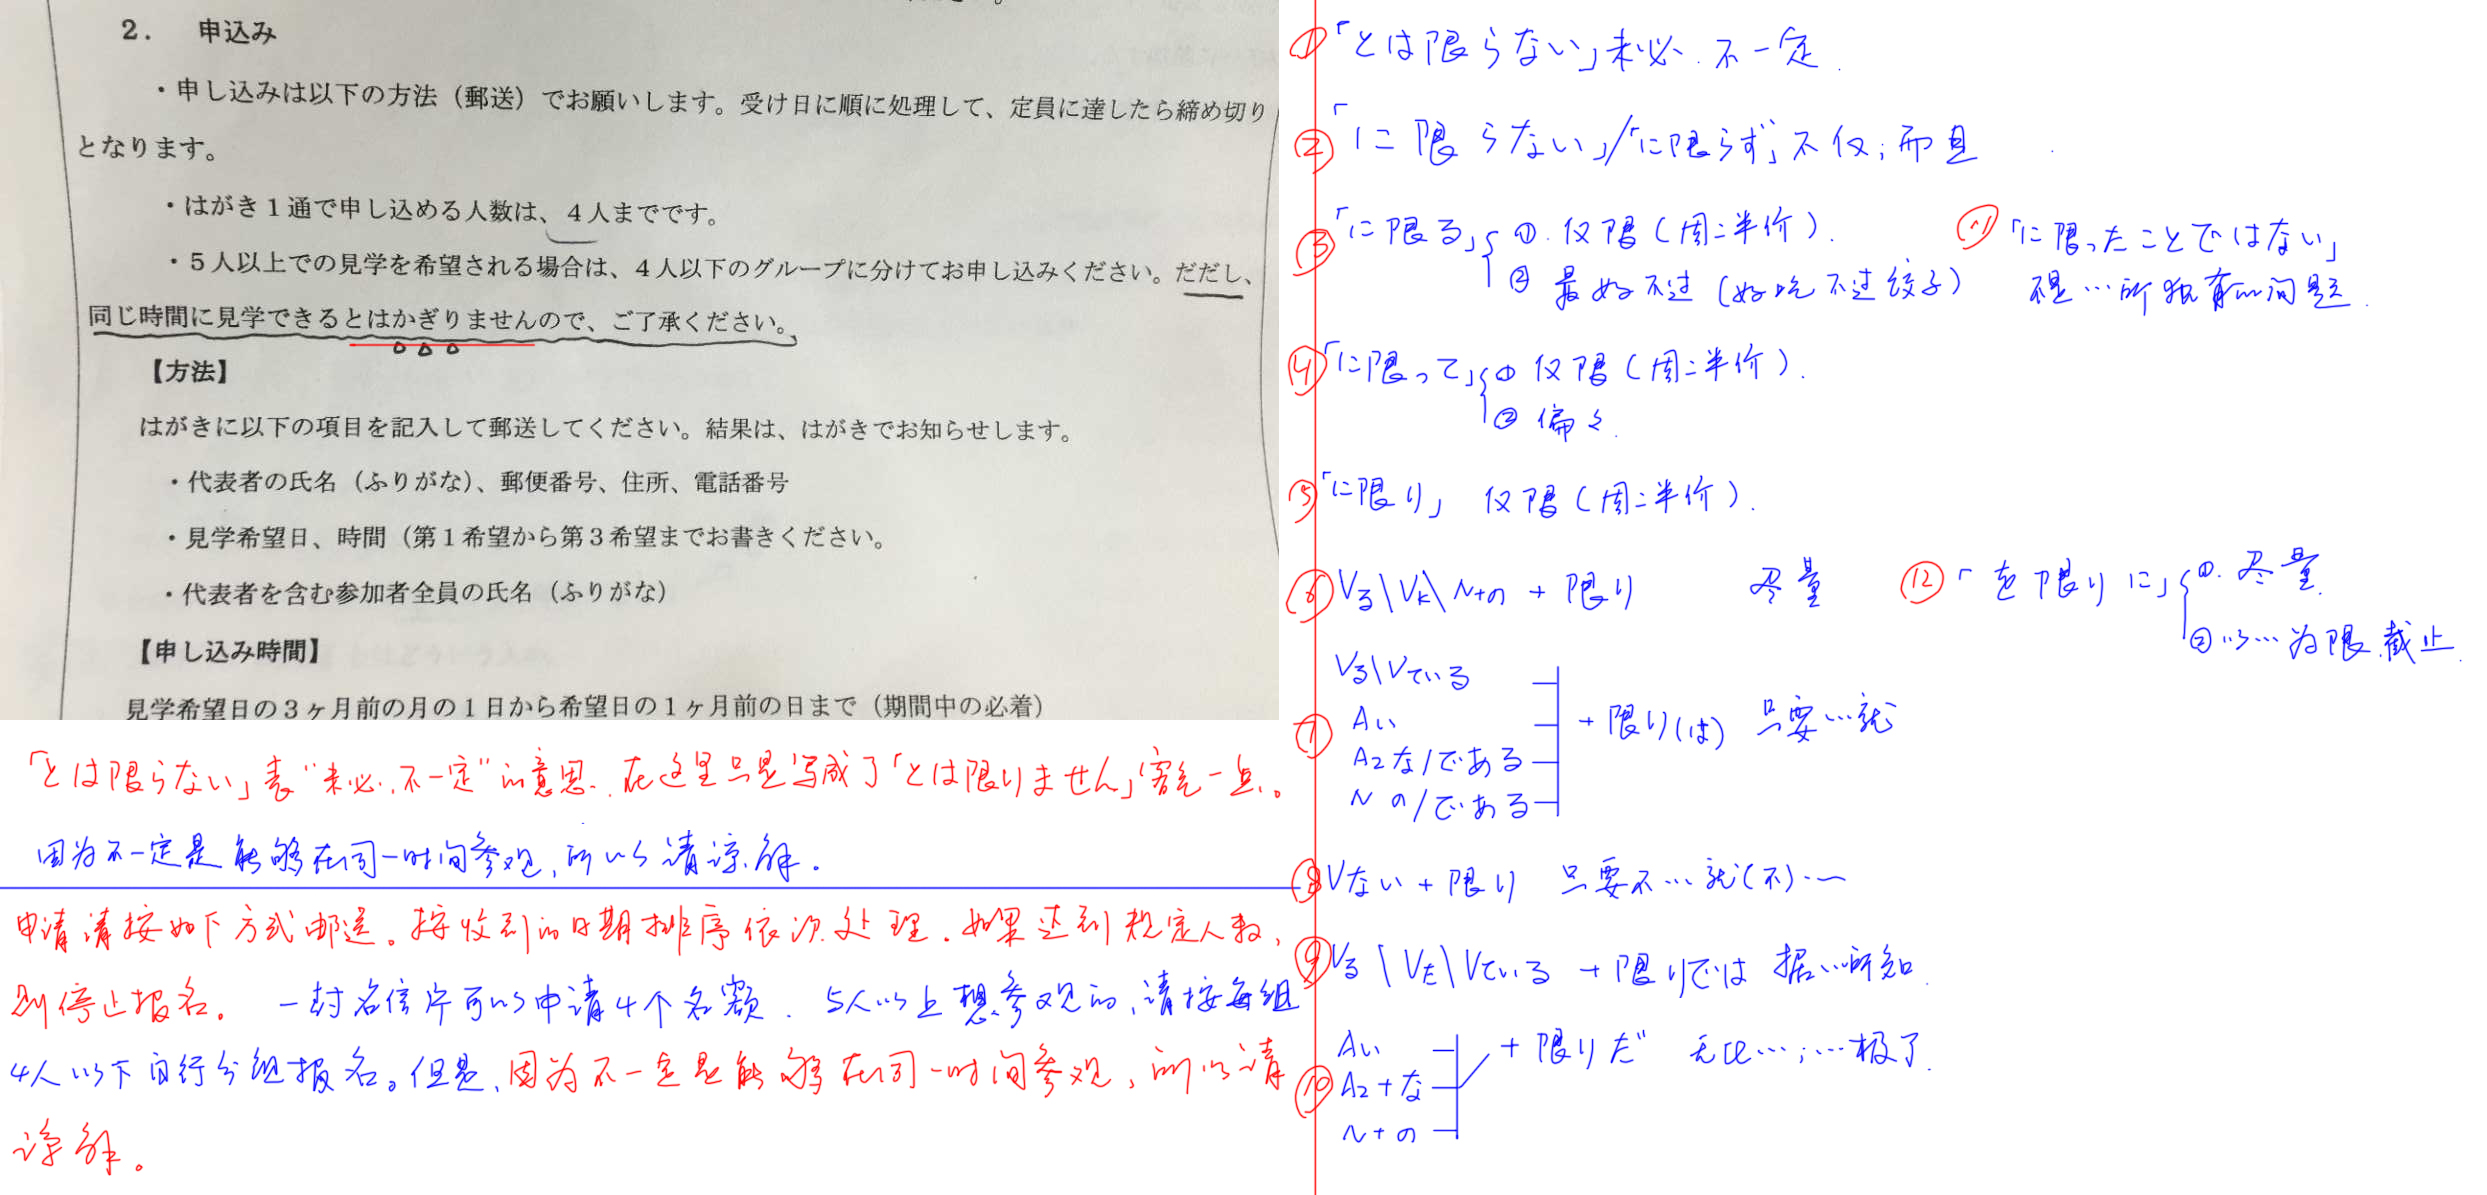 2.　申込み
・申し込みは以下の方法（郵送）でお願いします。受け日に順に処理して、定員に達したら締め切り
となります。
・はがき１通で申し込める人数は、４人までです。
・５人以上での見学を希望される場合は、４人以下のグループに分けてお申し込みください。だだし、
同じ時間に見学できるとはかぎりませんので、ご了承ください。
【方法】
はがきに以下の項目を記入して郵送してください。結果は、はがきでお知らせします。
・代表者の氏名（ふりがな）、郵便番号、住所、電話番号
・見学希望日、時間（第１希望から第３希望までお書きください。
・代表者を含む参加者全員の氏名（ふりがな）
【申し込み時間】
見学希望日の３ヶ月前の月の１日から希望日の１ヶ月前の日まで（期間中の必着）
「とは限らない」表“未必、不一定”的意思．在这里只是写成了「とは限りません」客气一点。
因为不一定是能够在同一时间参观，所以请谅解．
申请请按如下方式邮送。按收到的日期排序依次处理．如果达到规定人数，
则停止报名。一封名信片可以申请4个名额．5人以上想参观的，请按每组
4人以下自行分组报名。但是，因为不一定是能够在同一时间参观，所以请
谅解。
①「とは限らない」未必．不一定．
②「に限らない」/「に限らず」不仅；而且
③「に限る」①．仅限（周二半价）．
② 最好不过（好吃不过饺子）
⑪「に限ったことではない」
不是…所独有的问题．
④「に限って」① 仅限（周二半价）．
② 偏々．
⑤「に限り」仅限（周二半价）．
⑥ Vる\Vた\N+の + 限り　尽量
⑫「を限りに」①．尽量．
② 以…为限．截止．
⑦ Vる\Vている
Aい
A2な/である
Nの/である
+ 限り(は)　只要…就
⑧ Vない + 限り　只要不…就(不)…
⑨ Vる\Vた\Vている + 限りでは　据…所知．
⑩ Aい
A2+な
N+の
+ 限りだ　无比…；…极了．